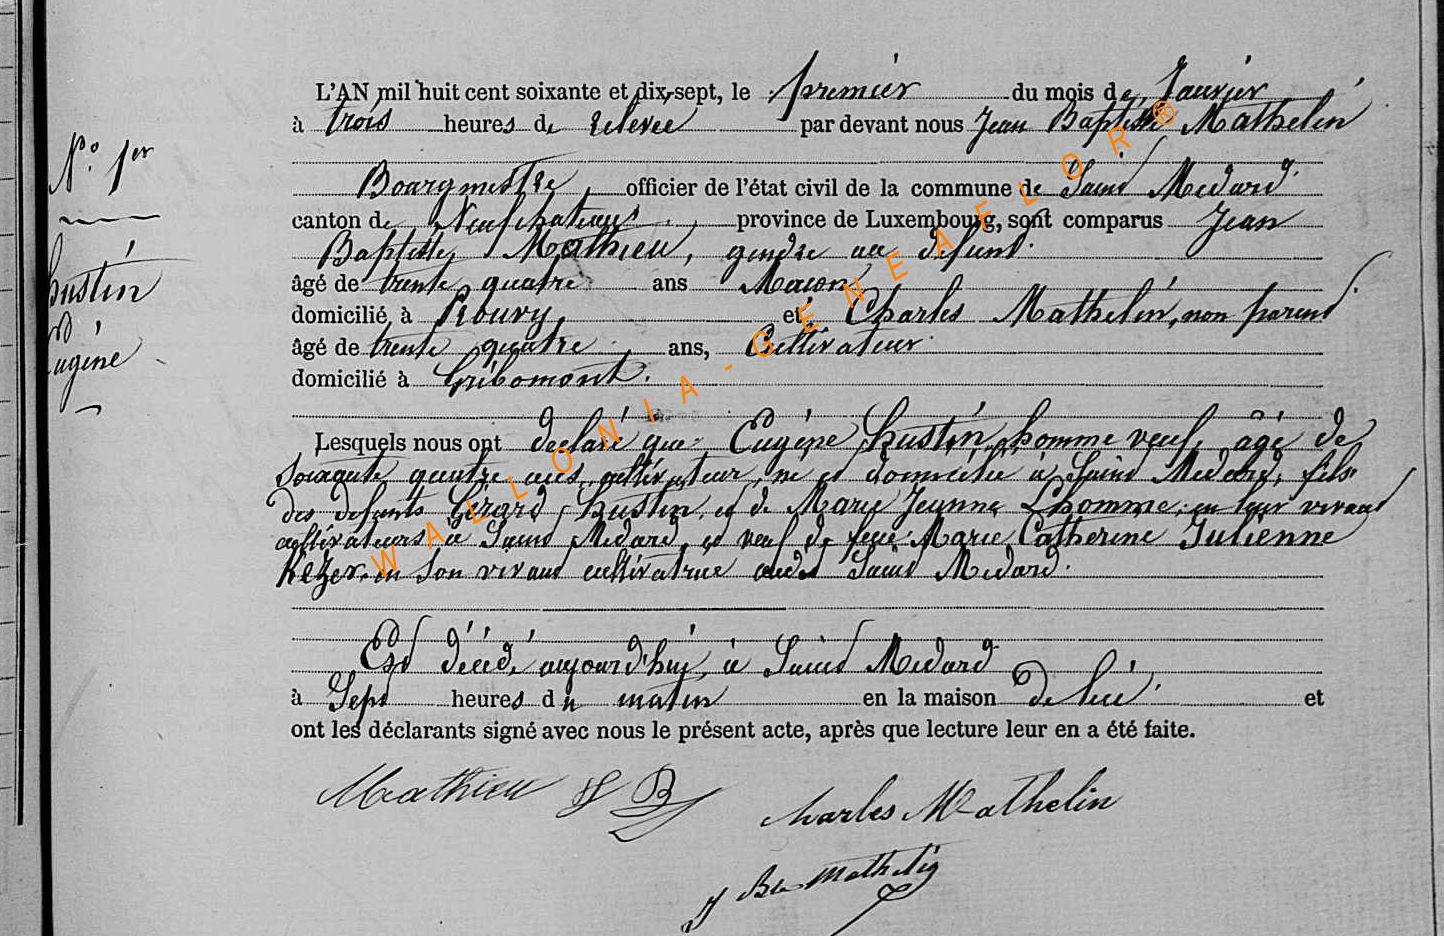 L'AN mil huit cent soixante et dix-sept, le premier du mois de Janvier
à trois heures de relevée par devant nous Jean Baptiste Mathelin
N.° 1er
Bourgmestre, officier de l'état civil de la commune de Saint Médard
canton de Neufchateau province de Luxembourg, sont comparus Jean
Baptiste Mathieu, gendre au défunt.
hustin
âgé de trente quatre ans Maçon
domicilié à et Charles Mathelin, non parent
âgé de trente quatre ans, Cultivateur
ugène
domicilié à Gribomont.
Lesquels nous ont déclaré que Eugène hustin, homme veuf, âgé de
soixante quatre ans, cultivateur, né et domicilié à Saint Médard, fils
des défunts Gérard hustin, et de Marie Jeanne Lhomme, en leur vivant
cultivateurs à Saint Médard, et veuf de feue Marie Catherine Julienne
en son vivant cultivatrice audit Saint Médard.
Est décédé aujourd'huy, à Saint Médard
à Sept heures du matin en la maison de lui et
ont les déclarants signé avec nous le présent acte, après que lecture leur en a été faite.
Mathieu J B
Charles Mathelin
J Bte Mathelin
WALLONIA-GENEAELOR®